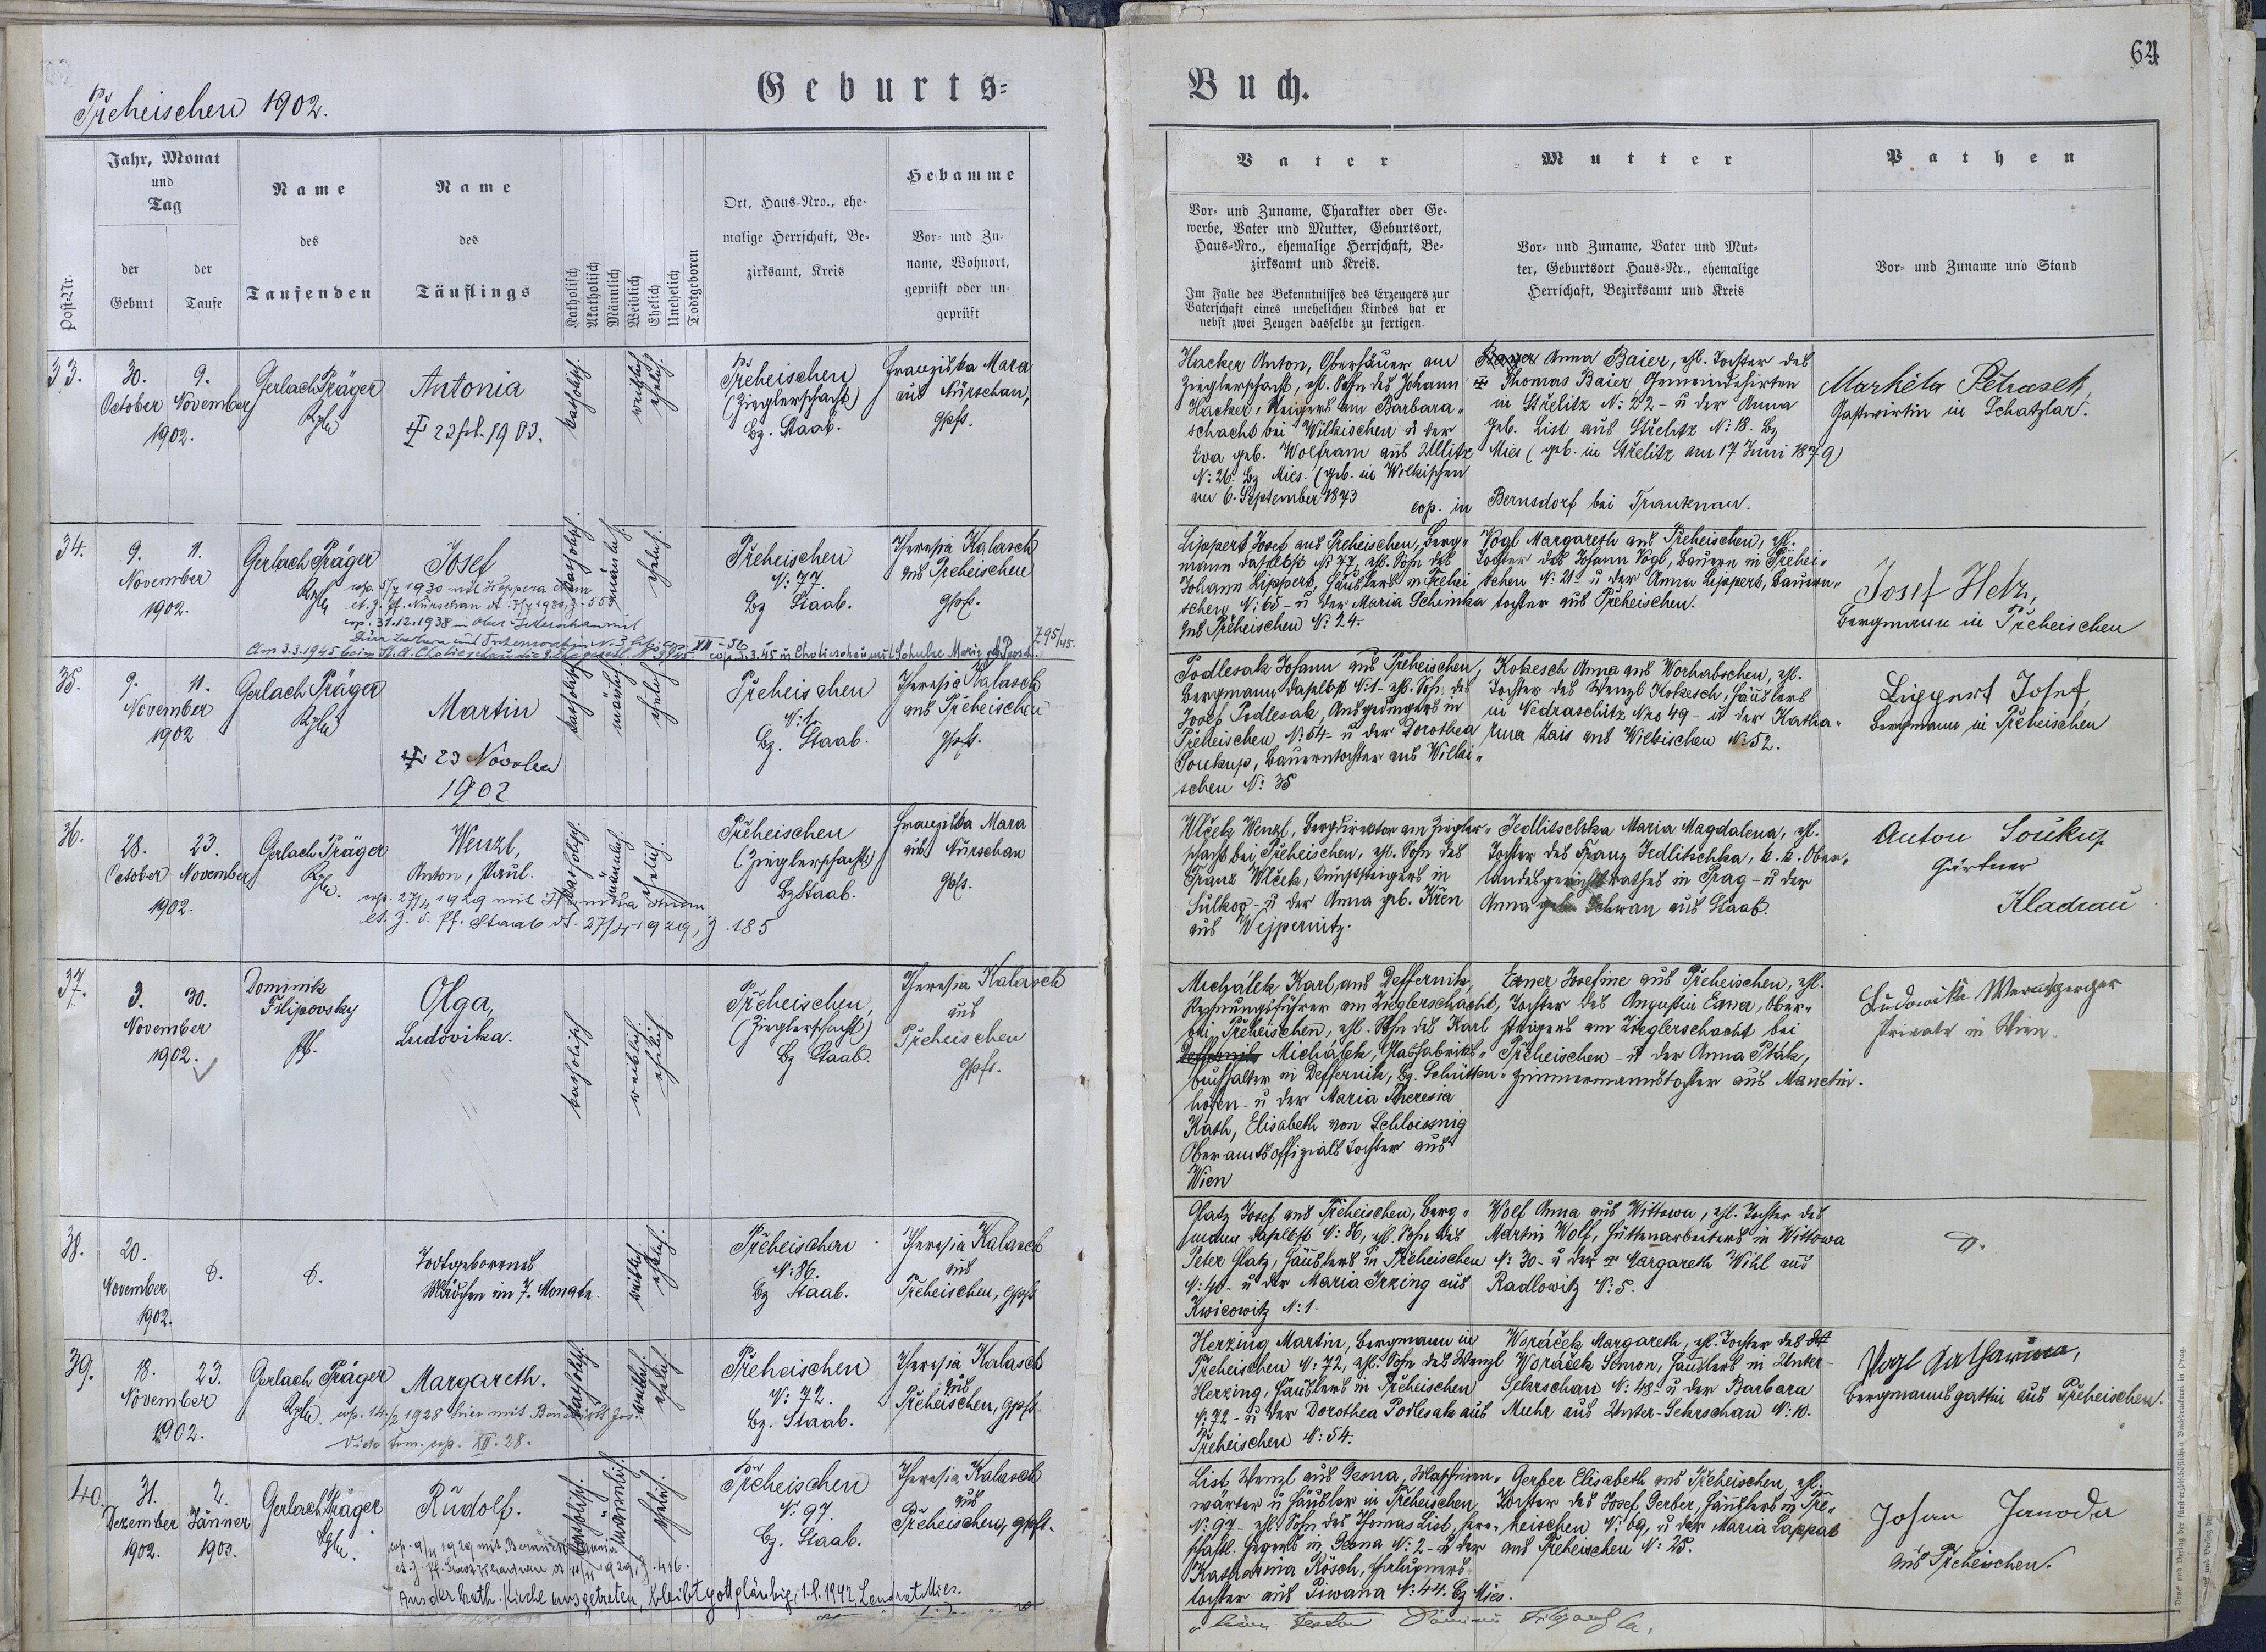 Geburts-
Buch.
64
Přeheischen 1902.
Post-Nr.
Jahr, Monat
und
Tag
der
Geburt
der
Taufe
Name
des
Taufenden
Name
des
Täuflings
Katholisch
Akatholisch
Männlich
Weiblich
Ehelich
Unehelich
Todtgeboren
Ort, Haus-Nro., ehe-
malige Herrschaft, Be-
zirksamt, Kreis
Hebamme
Vor- und Zu-
name, Wohnort,
geprüft oder un-
geprüft
Vater
Vor- und Zuname, Charakter oder Ge-
werbe, Vater und Mutter, Geburtsort,
Haus-Nro., ehemalige Herrschaft, Be-
zirksamt und Kreis.
Im Falle des Bekenntnisses des Erzeugers zur
Vaterschaft eines unehelichen Kindes hat er
nebst zwei Zeugen dasselbe zu fertigen.
Mutter
Vor- und Zuname, Vater und Mut-
ter, Geburtsort Haus-Nr., ehemalige
Herrschaft, Bezirksamt und Kreis
Pathen
Vor- und Zuname und Stand
33.
30.
October
9.
November
1902.
Gerlach Präger
Antonia
1903.
katholisch.
weiblich
ehelich.
Přeheischen
(Zieglerschacht)
Bz. Staab.
Franziska Mara
aus Nürschan,
gpft.
Hacker Anton, Oberhäuer am
Zieglerschacht, ehl. Sohn des Johann
Hacker, Steigers am Barbara-
schacht bei Wilkischen u der
Eva geb. Wolfram aus Ullitz
N: 26. Bz Mies. (geb. in Wilkischen
am 6. September 1873
Anna Baier, ehl. Tochter des
Thomas Baier Gemeindehirten
in Střelitz N: 22 - u der Anna
geb. List aus Střelitz N: 18. Bz
Mies (geb. in Střelitz am 17 Juni 1879)
cop. in Bernsdorf bei Trautenau.
Markéta Petrasek,
Gastwirtin in Schatzlar.
34.
9.
November
11.
1902.
Gerlach Präger
Josef
cop. 5/7 1930 mit
cop. 31.12.1938 in
katholisch.
männlich
ehelich.
Přeheischen
N: 77.
Bz Staab.
Theresia Kalasch
aus Přeheischen
gpft.
Lippert Josef aus Přeheischen, Berg-
mann daselbst N: 77, ehl. Sohn des
Johann Lippert, Häuslers in Přehei-
schen N: 65 - u der Maria Schimka
aus Přeheischen N: 24.
Vogl Margareth aus Přeheischen, ehl.
Tochter des Johann Vogl, Bauern in Přehei-
schen N: 21 - u der Anna Lippert, Bauern-
tochter aus Přeheischen.
Josef Helz,
Bergmann in Přeheischen
35.
9.
November
11.
1902
Gerlach Präger
Martin
23 November
1902
katholisch
männlich
ehelich
Přeheischen
N: 1
Bz. Staab.
Theresia Kalasch
aus Přeheischen
gpft.
Podlesak Johann aus Přeheischen,
Bergmann daselbst N: 1 - ehl. Sohn des
Josef Podlesak, Ausgedingers in
Přeheischen N: 54 - u der Dorothea
Soukup, Bauerntochter aus Wilki-
schen N: 35
Kokesch Anna aus Worhabschen, ehl.
Tochter des Wenzl Kokesch, Häuslers
in Nedraschitz Nro 49 - u der Katha-
rina Lais aus Wilkischen N: 52.
Lippert Josef,
Bergmann in Přeheischen
36.
28.
October
23.
November
1902.
Gerlach Präger
Wenzl,
Anton, Paul.
cop. 27/4 1929 mit
Staab dt. 27/4 1929, Z. 185
katholisch.
männlich.
ehelich.
Přeheischen
(Zieglerschacht)
Bz Staab.
Franziska Mara
aus Nürschan
gpft.
Wlček Wenzl, Bergdirektor am Ziegler-
schacht bei Přeheischen, ehl. Sohn des
Franz Wlček, Kunststeigers in
Sulkov - u der Anna geb. Křen
aus Wejpernitz.
Jedlitschka Maria Magdalena, ehl.
Tochter des Franz Jedlitschka, k. k. Ober-
landesgerichtsrathes in Prag - u der
Anna geb. Schwan aus Staab.
Anton Soukup
Gärtner
Kladrau
37.
3.
November
30.
1902.
Dominik
Filipovsky
Olga,
Ludovika.
katholisch
weiblich.
ehelich.
Přeheischen,
(Zieglerschacht)
Bz Staab.
Theresia Kalasch
aus
Přeheischen
gpft.
Michálek Karl, aus Deffernik,
Rechnungsführer am Zieglerschacht,
bei Přeheischen, ehl. Sohn des Karl
Michálek, Glasfabriks-
buchhalter in Deffernik, Bz. Schütten-
hofen - u der Maria Theresia
Kath, Elisabeth von Schloissnig
Oberamtsoffizials Tochter aus
Wien
Exner Josefine aus Přeheischen, ehl.
Tochter des Augustin Exner, Ober-
steigers am Zieglerschacht bei
Přeheischen - u der Anna Pták,
Zimmermannstochter aus Manetin.
Ludowika
Private in Wien
38.
20.
November
1902.
Todtgeborenes
Mädchen im 7. Monate.
weiblich.
ehelich.
Přeheischen
N: 86.
Bz Staab.
Theresia Kalasch
aus
Přeheischen, gpft
Glatz Josef aus Přeheischen, Berg-
mann daselbst N: 86, ehl. Sohn des
Peter Glatz, Häuslers in Přeheischen
N: 40 - u der Maria Irzing aus
Kwicowitz N: 1.
Wolf Anna aus Wittowa, ehl. Tochter des
Martin Wolf, Hüttenarbeiters in Wittowa
N: 30 - u der Margareth Wihl aus
Radlowitz N: 5.
39.
18.
November
23.
1902.
Gerlach Präger
Margareth.
cop. 14/2 1928 hier mit
Vide tom. cop. XII. 28.
katholisch
weiblich
ehelich.
Přeheischen
N: 72.
Bz. Staab.
Theresia Kalasch
aus
Přeheischen, gpft.
Herzing Martin, Bergmann in
Přeheischen N: 72, ehl. Sohn des Wenzl
Herzing, Häuslers in Přeheischen
N: 72 - u der Dorothea Podlesak aus
Přeheischen N: 54.
Woráček Margareth, ehl. Tochter des
Woráček Simon, Häuslers in Unter-
Sekrschan N: 48 - u der Barbara
Muhr aus Unter-Sekrschan N: 10.
Vogl Katharina,
Bergmannsgattin aus Přeheischen.
40.
31.
Dezember
1902.
2.
Jänner
1903.
Gerlach Präger
Rudolf.
cop. 9/11 1929 mit
Aus der kath. Kirche ausgetreten, bleibt gottgläubig, 1942, Landrat Mies.
katholisch.
männlich.
ehelich.
Přeheischen
N: 97.
Bz. Staab.
Theresia Kalasch
aus
Přeheischen, gpft.
List Wenzl aus Gesna, Maschinen-
wärter u Häusler in Přeheischen,
N: 97 - ehl. Sohn des Thomas List, herr-
schaftl. Hegers in Gesna N: 2 - u der
Katharina Rösch,
tochter aus Piwana N: 44. Bz Mies.
Gerber Elisabeth aus Přeheischen, ehl.
Tochter des Josef Gerber, Häuslers in Pře-
heischen N: 69, u der Maria Lappat
aus Přeheischen N: 25.
Johan Janoda
aus Přeheischen.